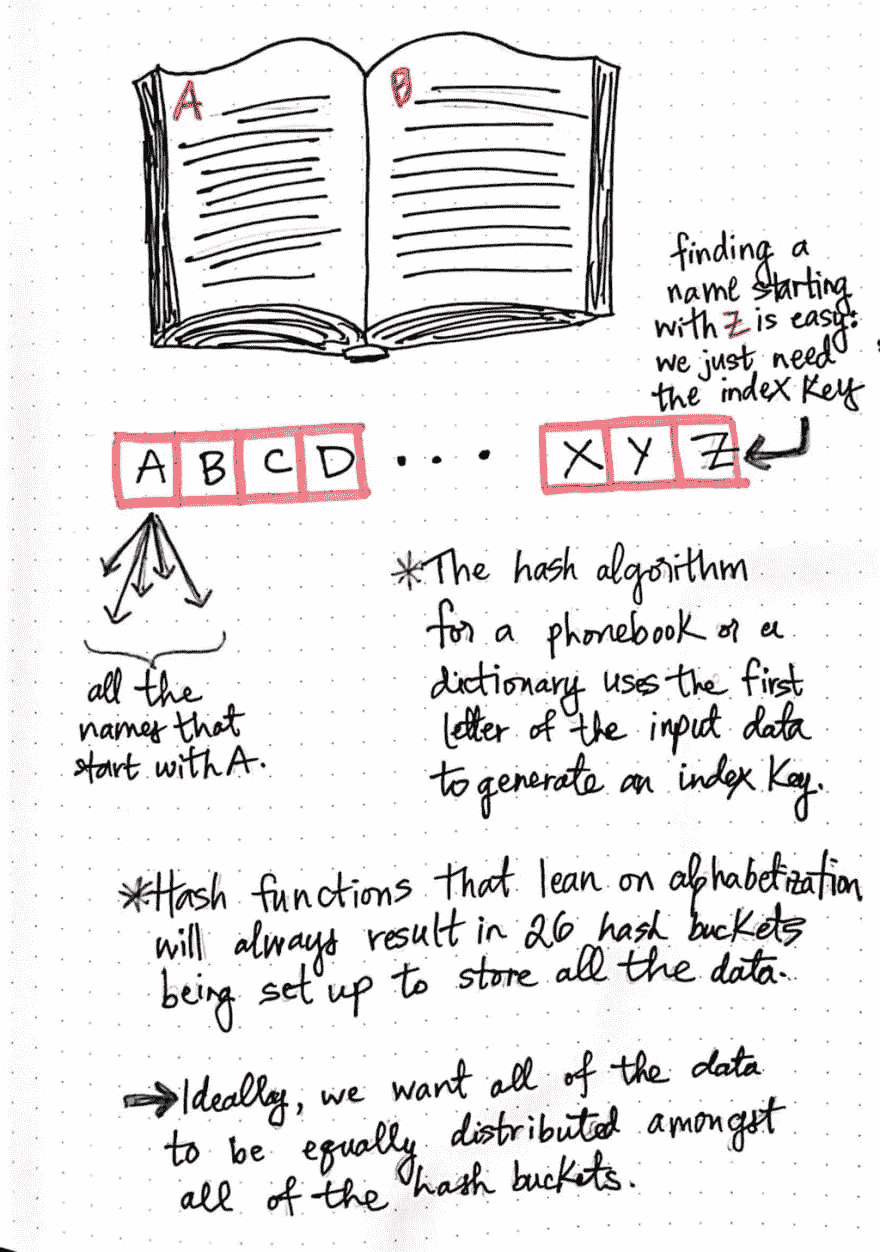 A
B
finding a
name starting
with Z is easy:
we just need
the index key
A B C D ... X Y Z
all the
names that
start with A.
*The hash algorithm
for a phonebook or a
dictionary uses the first
letter of the input data
to generate an index key.
*Hash functions that lean on alphabetization
will always result in 26 hash buckets
being set up to store all the data.
→Ideally, we want all of the data
to be equally distributed amongst
all of the hash buckets.